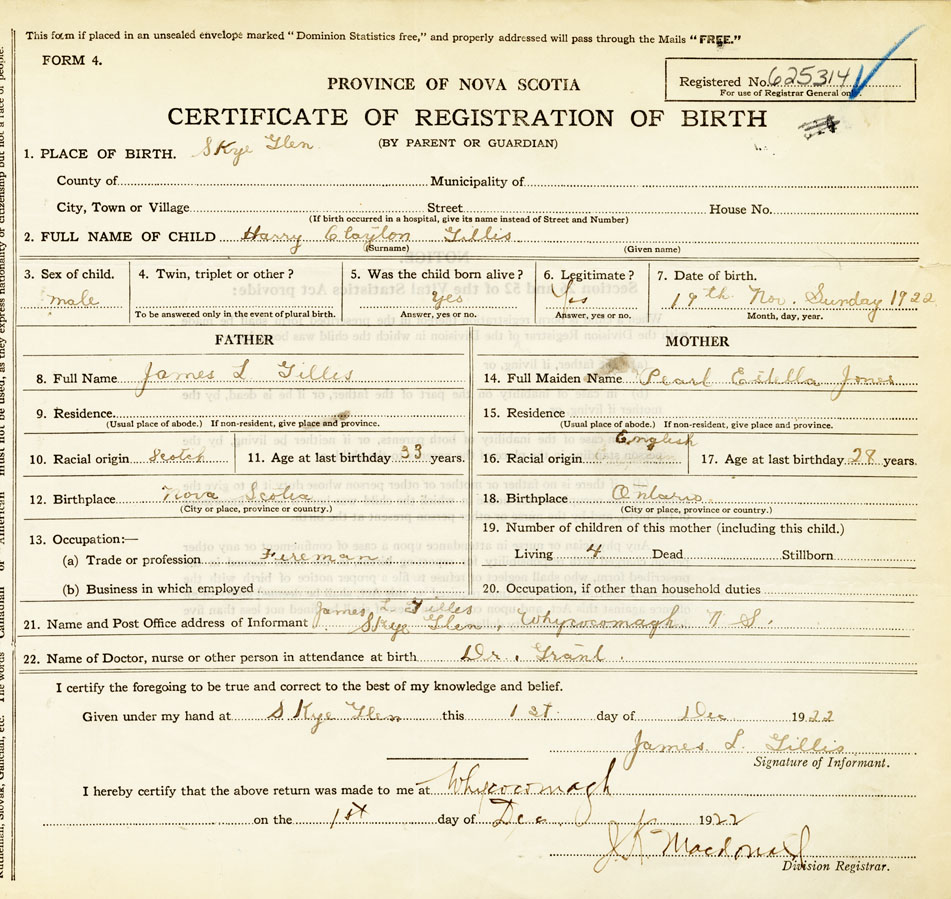 This form if placed in an unsealed envelope marked "Dominion Statistics free," and properly addressed will pass through the Mails "FREE."
FORM 4.
Registered No. 625314
For use of Registrar General only
PROVINCE OF NOVA SCOTIA
CERTIFICATE OF REGISTRATION OF BIRTH
(BY PARENT OR GUARDIAN)
1. PLACE OF BIRTH. Skye Glen
County of Municipality of
City, Town or Village Street House No.
(If birth occurred in a hospital, give its name instead of Street and Number)
2. FULL NAME OF CHILD Harry Clayton Gillis
(Surname) (Given name)
3. Sex of child. 4. Twin, triplet or other? 5. Was the child born alive? 6. Legitimate? 7. Date of birth.
male Yes Yes 19th Nov. Sunday 1922
To be answered only in the event of plural birth. Answer, yes or no. Answer, yes or no. Month, day, year.
FATHER
8. Full Name James L Gillis
9. Residence.
(Usual place of abode.) If non-resident, give place and province.
10. Racial origin Scotch 11. Age at last birthday 33 years.
12. Birthplace Nova Scotia
(City or place, province or country.)
13. Occupation:—
(a) Trade or profession Fireman
(b) Business in which employed
MOTHER
14. Full Maiden Name Pearl Estella Jones
15. Residence
(Usual place of abode.) If non-resident, give place and province.
16. Racial origin English 17. Age at last birthday 28 years.
18. Birthplace Ontario
(City or place, province or country.)
19. Number of children of this mother (including this child.)
Living 4 Dead Stillborn
20. Occupation, if other than household duties
James L. Gillis
21. Name and Post Office address of Informant Skye Glen, Whycocomagh N S.
22. Name of Doctor, nurse or other person in attendance at birth Dr. Grant.
I certify the foregoing to be true and correct to the best of my knowledge and belief.
Given under my hand at Skye Glen this 1st day of Dec 1922
James L. Gillis
Signature of Informant.
I hereby certify that the above return was made to me at Whycocomagh
on the 1st day of Dec 1922
J.K. Macdonald
Division Registrar.